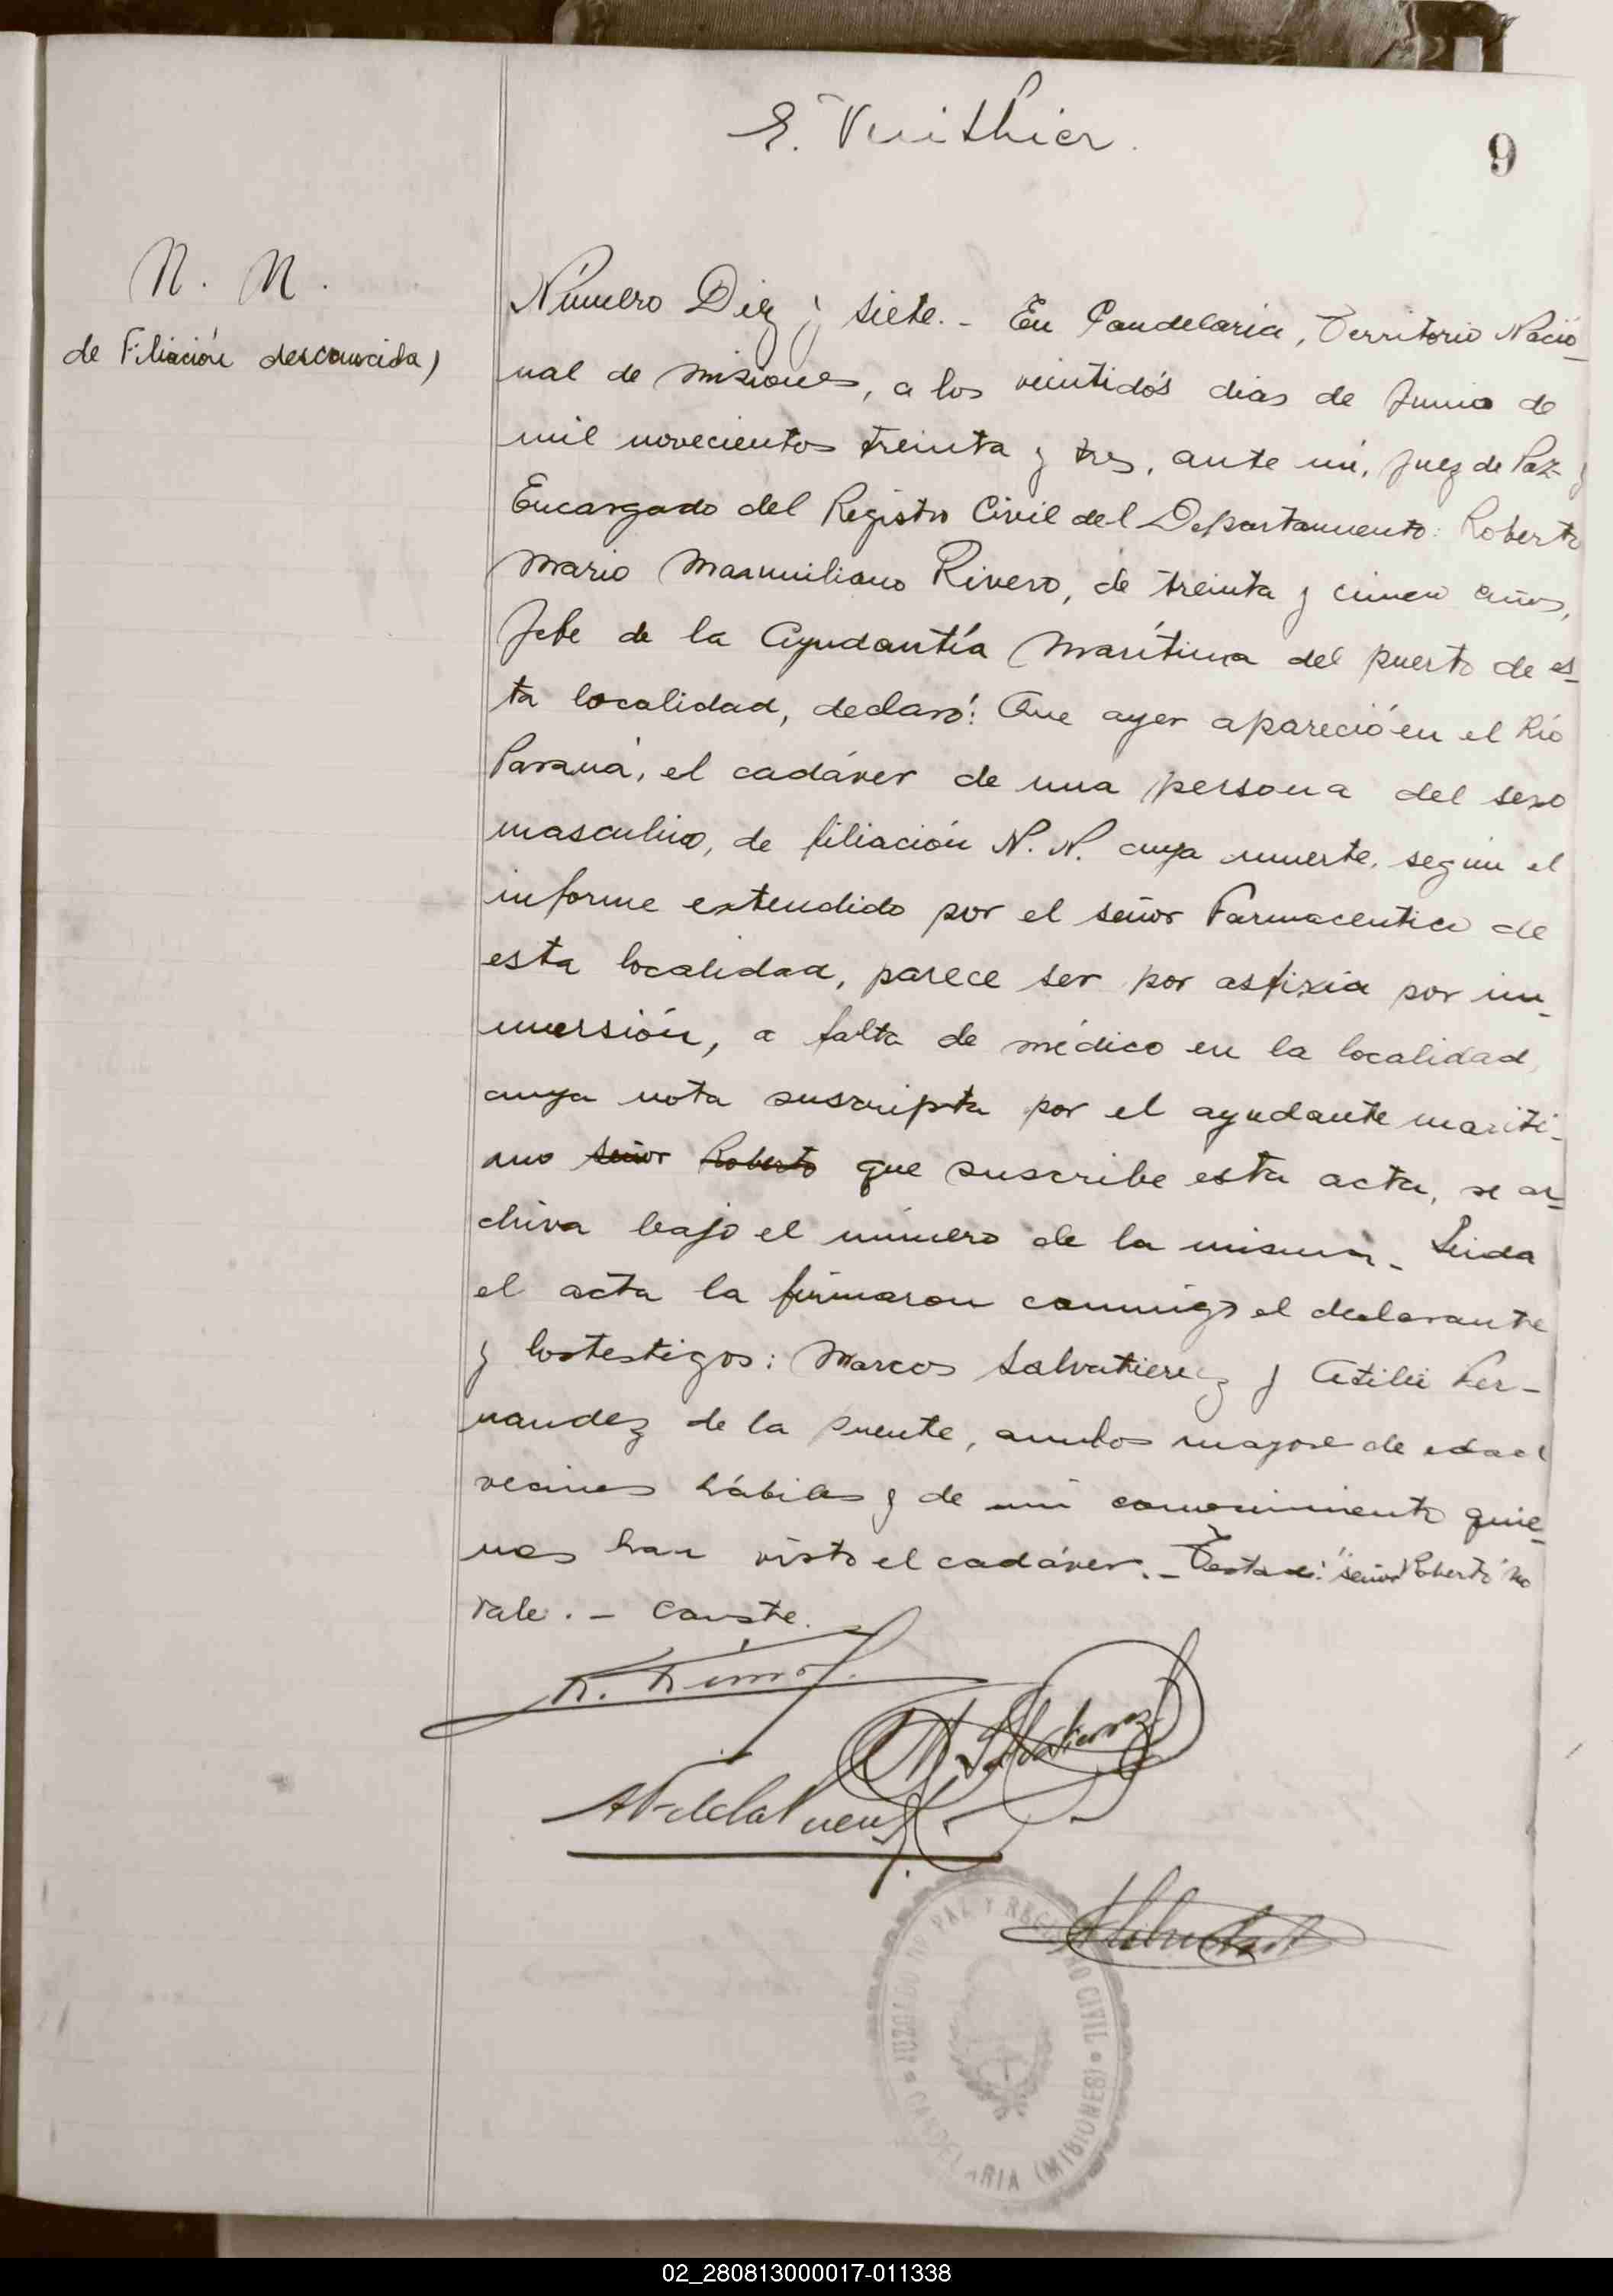 E. Vuithier.
9
N. N.
de Filiación desconocida)
Número Diez y siete.- En Candelaria, Territorio Nacio-
nal de misiones, a los veintidós dias de Junio de
mil novecientos treinta y tres, ante mí, Juez de Paz y
Encargado del Registro Civil del Departamento: Roberto
Mario Maxmiliano Rivero, de treinta y cinco años,
Jefe de la Ayudantía Marítima del puerto de es-
ta localidad, declaró: Que ayer apareció en el Río
Paraná, el cadáver de una persona del sexo
masculino, de filiación N. N. cuya muerte, según el
informe extendido por el señor Farmaceutico de
esta localidad, parece ser por asfixia por in-
mersión, a falta de médico en la localidad,
cuya nota suscripta por el ayudante maríti-
mo señor Roberto que suscribe esta acta, se ar-
chiva bajo el número de la misma.- Leida
el acta la firmaron conmigo el declarante
y los testigos: Marcos Salvatierrez y Atilio Fer-
nandez de la Puente, ambos mayores de edad
vecinos hábiles y de mi conocimiento quie-
nes han visto el cadáver.- Testado: "señor Roberto" no
vale.- Conste.
R. Rivero
M. Salvatierrez
AF de la Puente
JUZGADO DE PAZ Y REGISTRO CIVIL • CANDELARIA (MISIONES) •
02_280813000017-011338